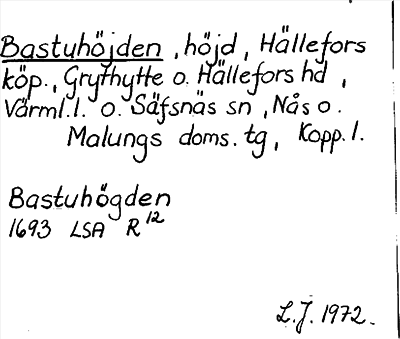 Bastuhöjden, höjd, Hällefors
köp., Grythytte o. Hällefors hd,
Värml.l. o. Säfsnäs sn, Nås o.
Malungs doms.tg, Kopp.l.
Bastuhögden
1693 LSA R12
L.J. 1972.